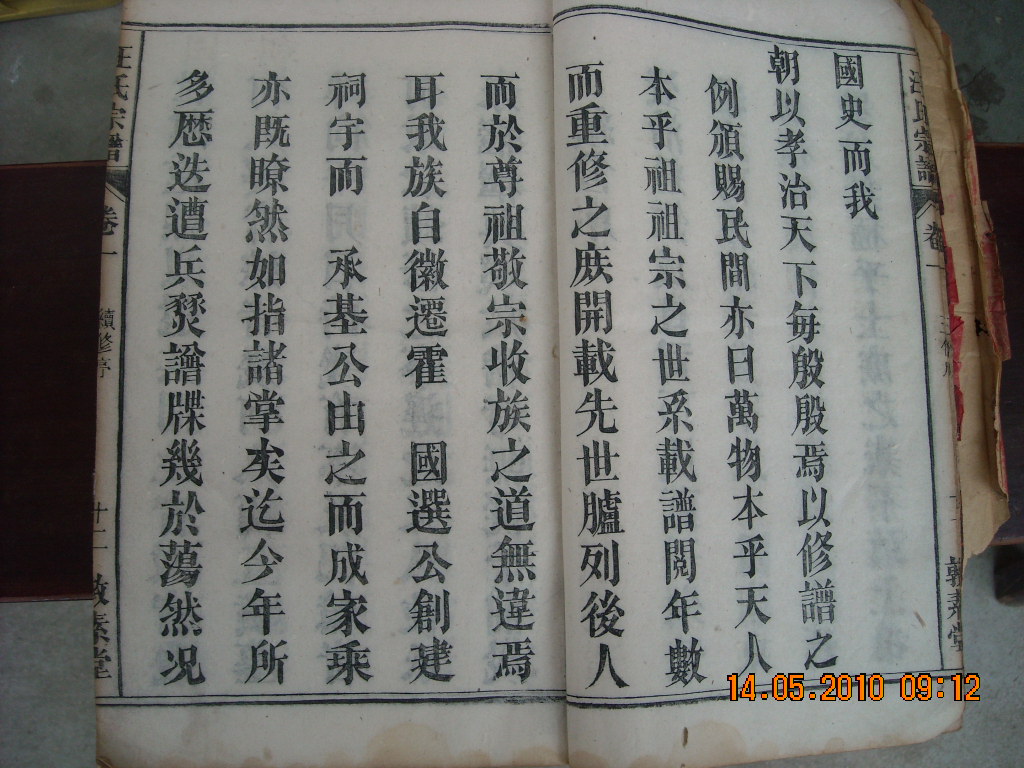 國史而我
朝以孝治天下每殷殷焉以修譜之
例頒賜民間亦曰萬物本乎天人
本乎祖祖宗之世系載譜閱年數
而重修之庶開載先世臚列後人
而於尊祖敬宗收族之道無違焉
耳我族自徽遷霍 國選公創建
祠宇而 承基公由之而成家乘
亦既瞭然如指諸掌矣迄今年所
多歷迭遭兵燹譜牒幾於蕩然况
汪氏宗譜 卷一 續修序 十二 敦素堂
汪氏宗譜 卷一
14.05.2010 09:12